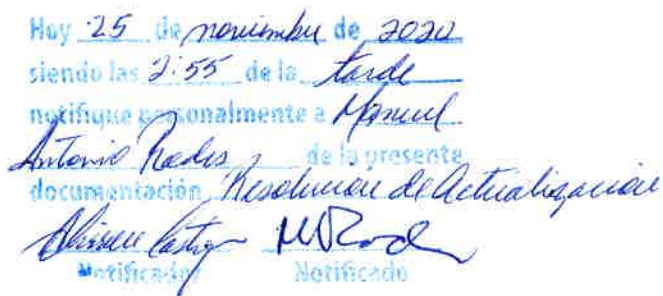 Hoy 25 de noviembre de 2020
siendo las 2:55 de la tarde
notifique personalmente a Manuel
Antonio de la presente
documentación Resolucion de Actualización
Castro
Notificador Notificado